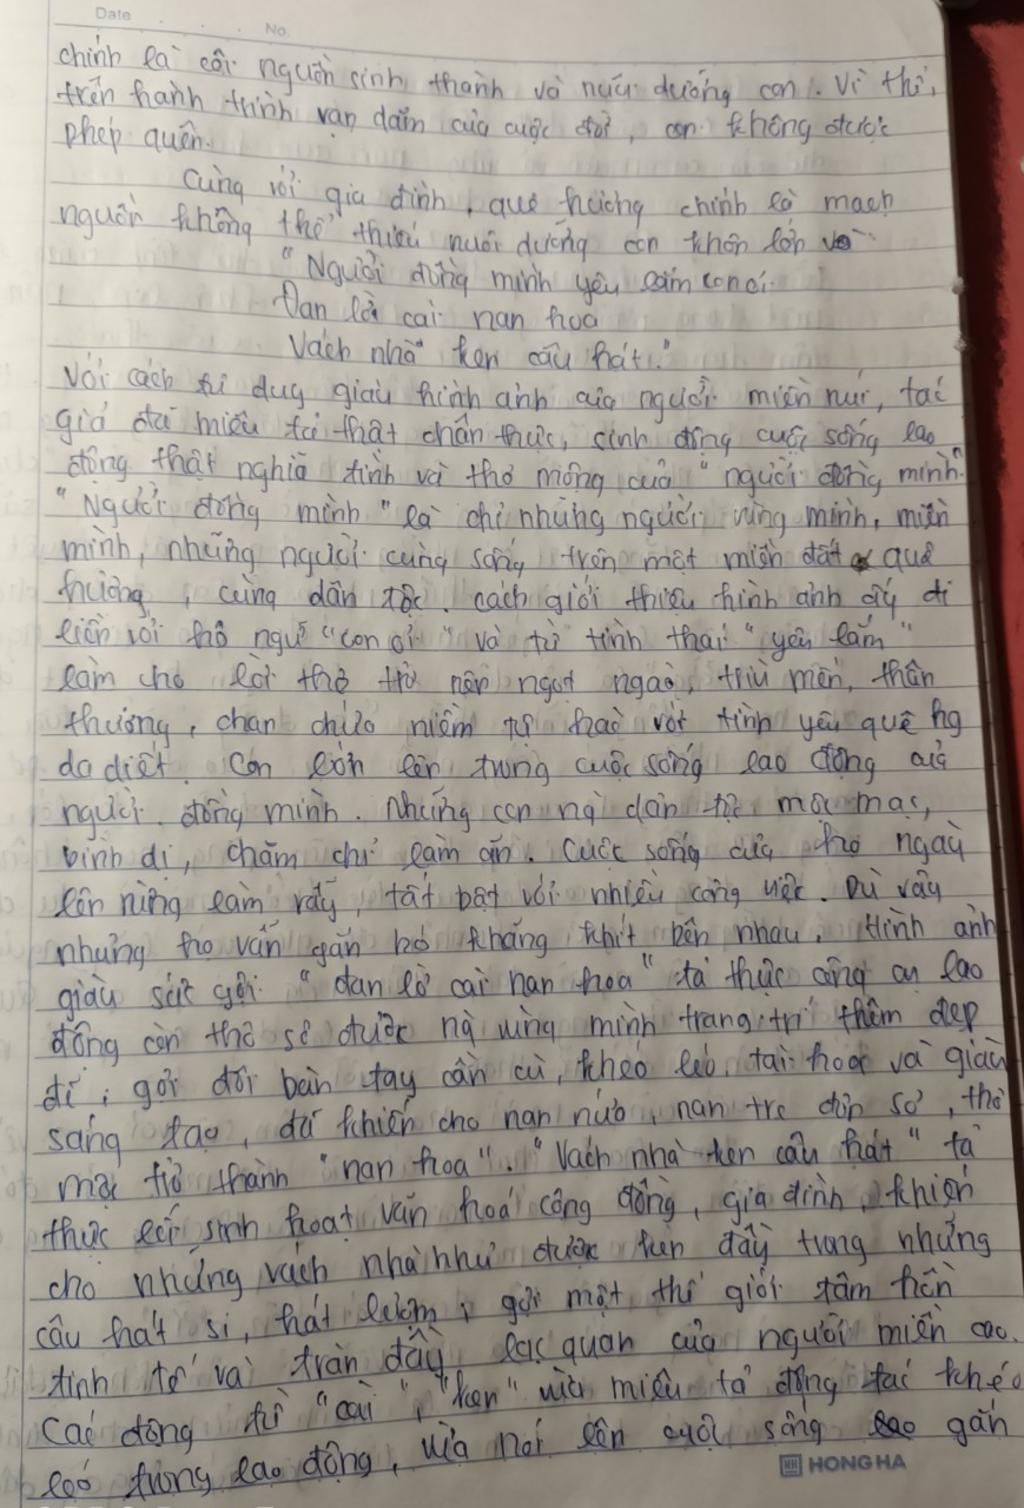 Date No.
chính là cội nguồn sinh thành và nuôi dưỡng con. Vì thế,
trên hành trình vạn dặm của cuộc đời, con không được
phép quên.
Cùng với gia đình, quê hương chính là mạch
nguồn không thể thiếu nuôi dưỡng con khôn lớn
"Người đồng mình yêu lắm con ơi
Đan lờ cài nan hoa
Vách nhà ken câu hát."
Với cách tư duy giàu hình ảnh của người miền núi, tác
giả đã miêu tả thật chân thực, sinh động cuộc sống lao
động thật nghĩa tình và thơ mộng của "người đồng mình"
"Người đồng mình" là chỉ những người vùng mình, miền
mình, những người cùng sống trên một miền đất quê
hương, cùng dân tộc. cách giới thiệu hình ảnh ấy đi
liền với hô ngữ "con ơi" và từ tình thái "yêu lắm"
làm cho lời thơ trở nên ngọt ngào, trìu mến, thân
thương, chan chứa niềm tự hào với tình yêu quê hg
da diết. Con lớn lên trong cuộc sống lao động của
người đồng mình. Những con ng dân tộc mộc mạc,
bình dị, chăm chỉ làm ăn. Cuộc sống của họ ngày
lên rừng làm rẫy, tất bật với nhiều công việc. Dù vậy
nhưng họ vẫn gắn bó khăng khít bên nhau. Hình ảnh
giàu sức gợi "đan lờ cài nan hoa" tả thực công cụ lao
động còn thô sơ được ng vùng mình trang trí thêm đẹp
đẽ, gợi đôi bàn tay cần cù, khéo léo, tài hoa và giàu
sáng tạo, đã khiến cho nan nứa, nan tre đơn sơ, thô
mộc trở thành "nan hoa". "Vách nhà ken câu hát" tả
thực lối sinh hoạt văn hoá cộng đồng, gia đình, khiến
cho những vách nhà như được ken đầy trong những
câu hát si, hát lượn, gợi một thế giới tâm hồn
tinh tế và tràn đầy lạc quan của người miền cao.
Các động từ "cài", "ken" vừa miêu tả động tác khéo
léo trong lao động, vừa nói lên cuộc sống gắn
HONG HA